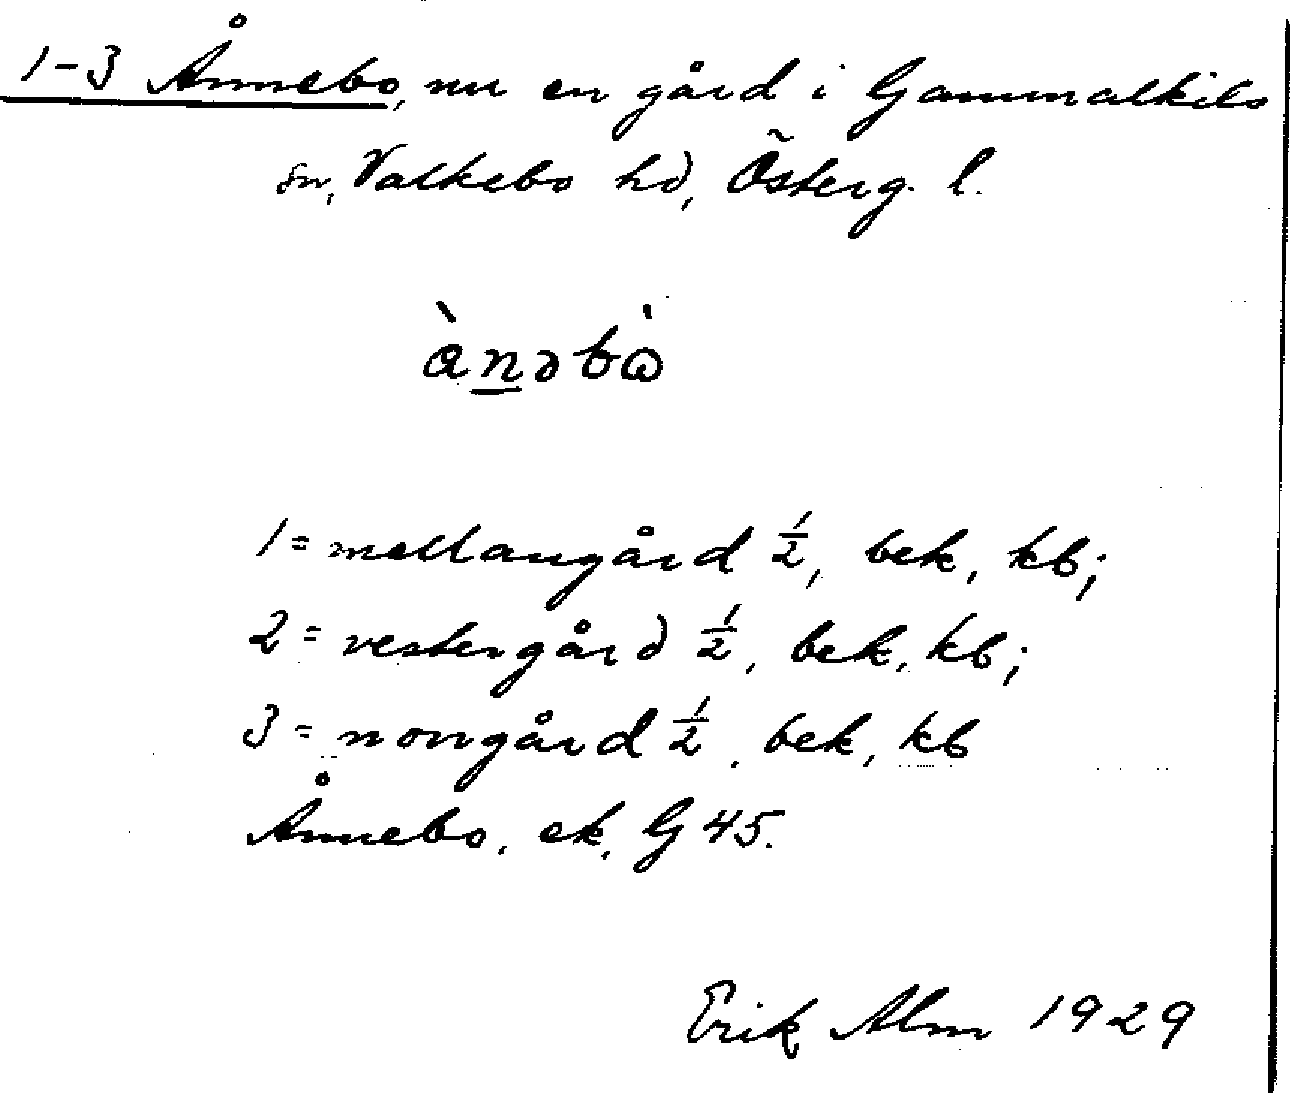 1-3 Ånnebo, nu en gård i Gammalkils
sn, Valkebo hd, Österg. l.
ànəbò
1 = mellangård ½, bek, kb;
2 = vestergård ½, bek, kb;
3 = norrgård ½, bek, kb
Ånnebo, ek, G 45.
Erik Alm 1929